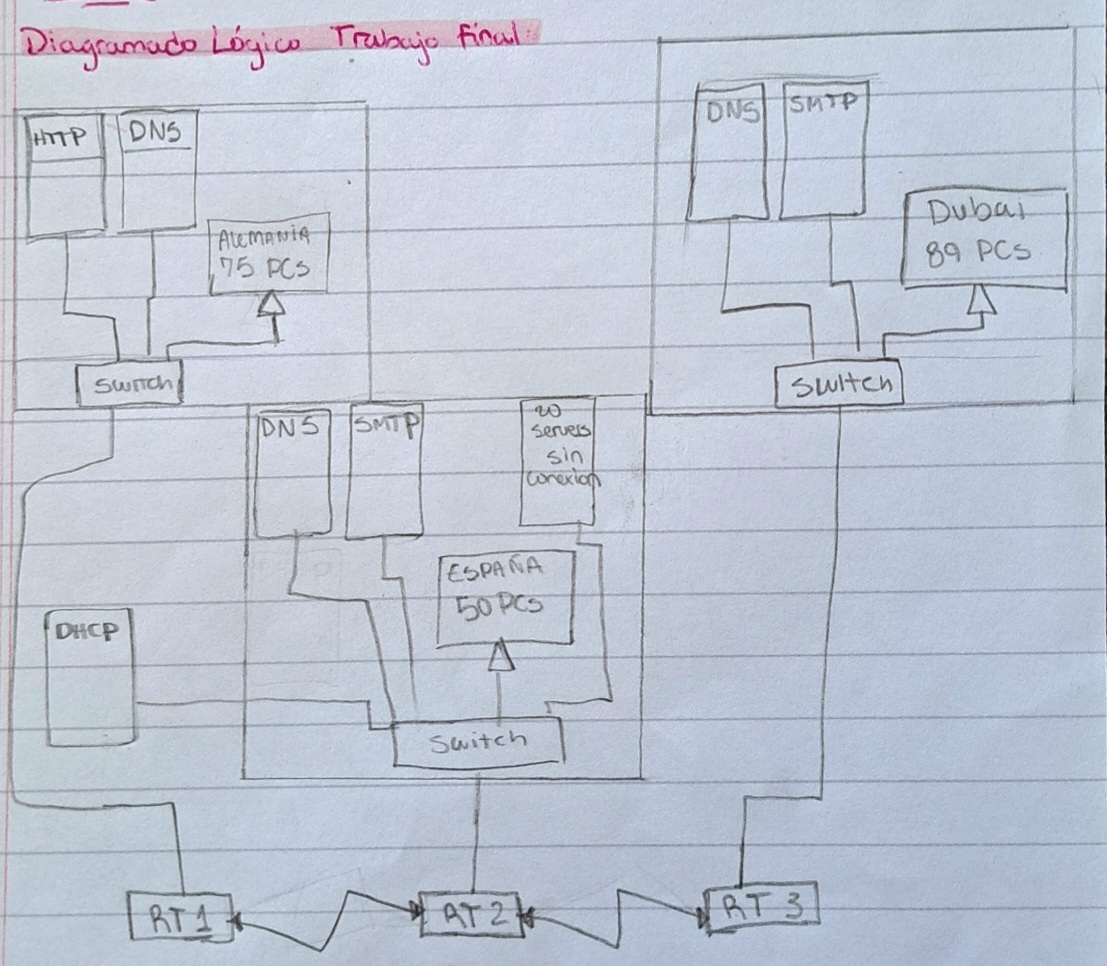 Diagramado Lógico Trabajo final:
HTTP
DNS
ALEMANIA
75 PCs
Switch
DNS
SMTP
Dubai
89 PCs
Switch
DNS
SMTP
20
servers
sin
conexion
ESPAÑA
50 PCs
DHCP
Switch
RT 1
RT 2
RT 3